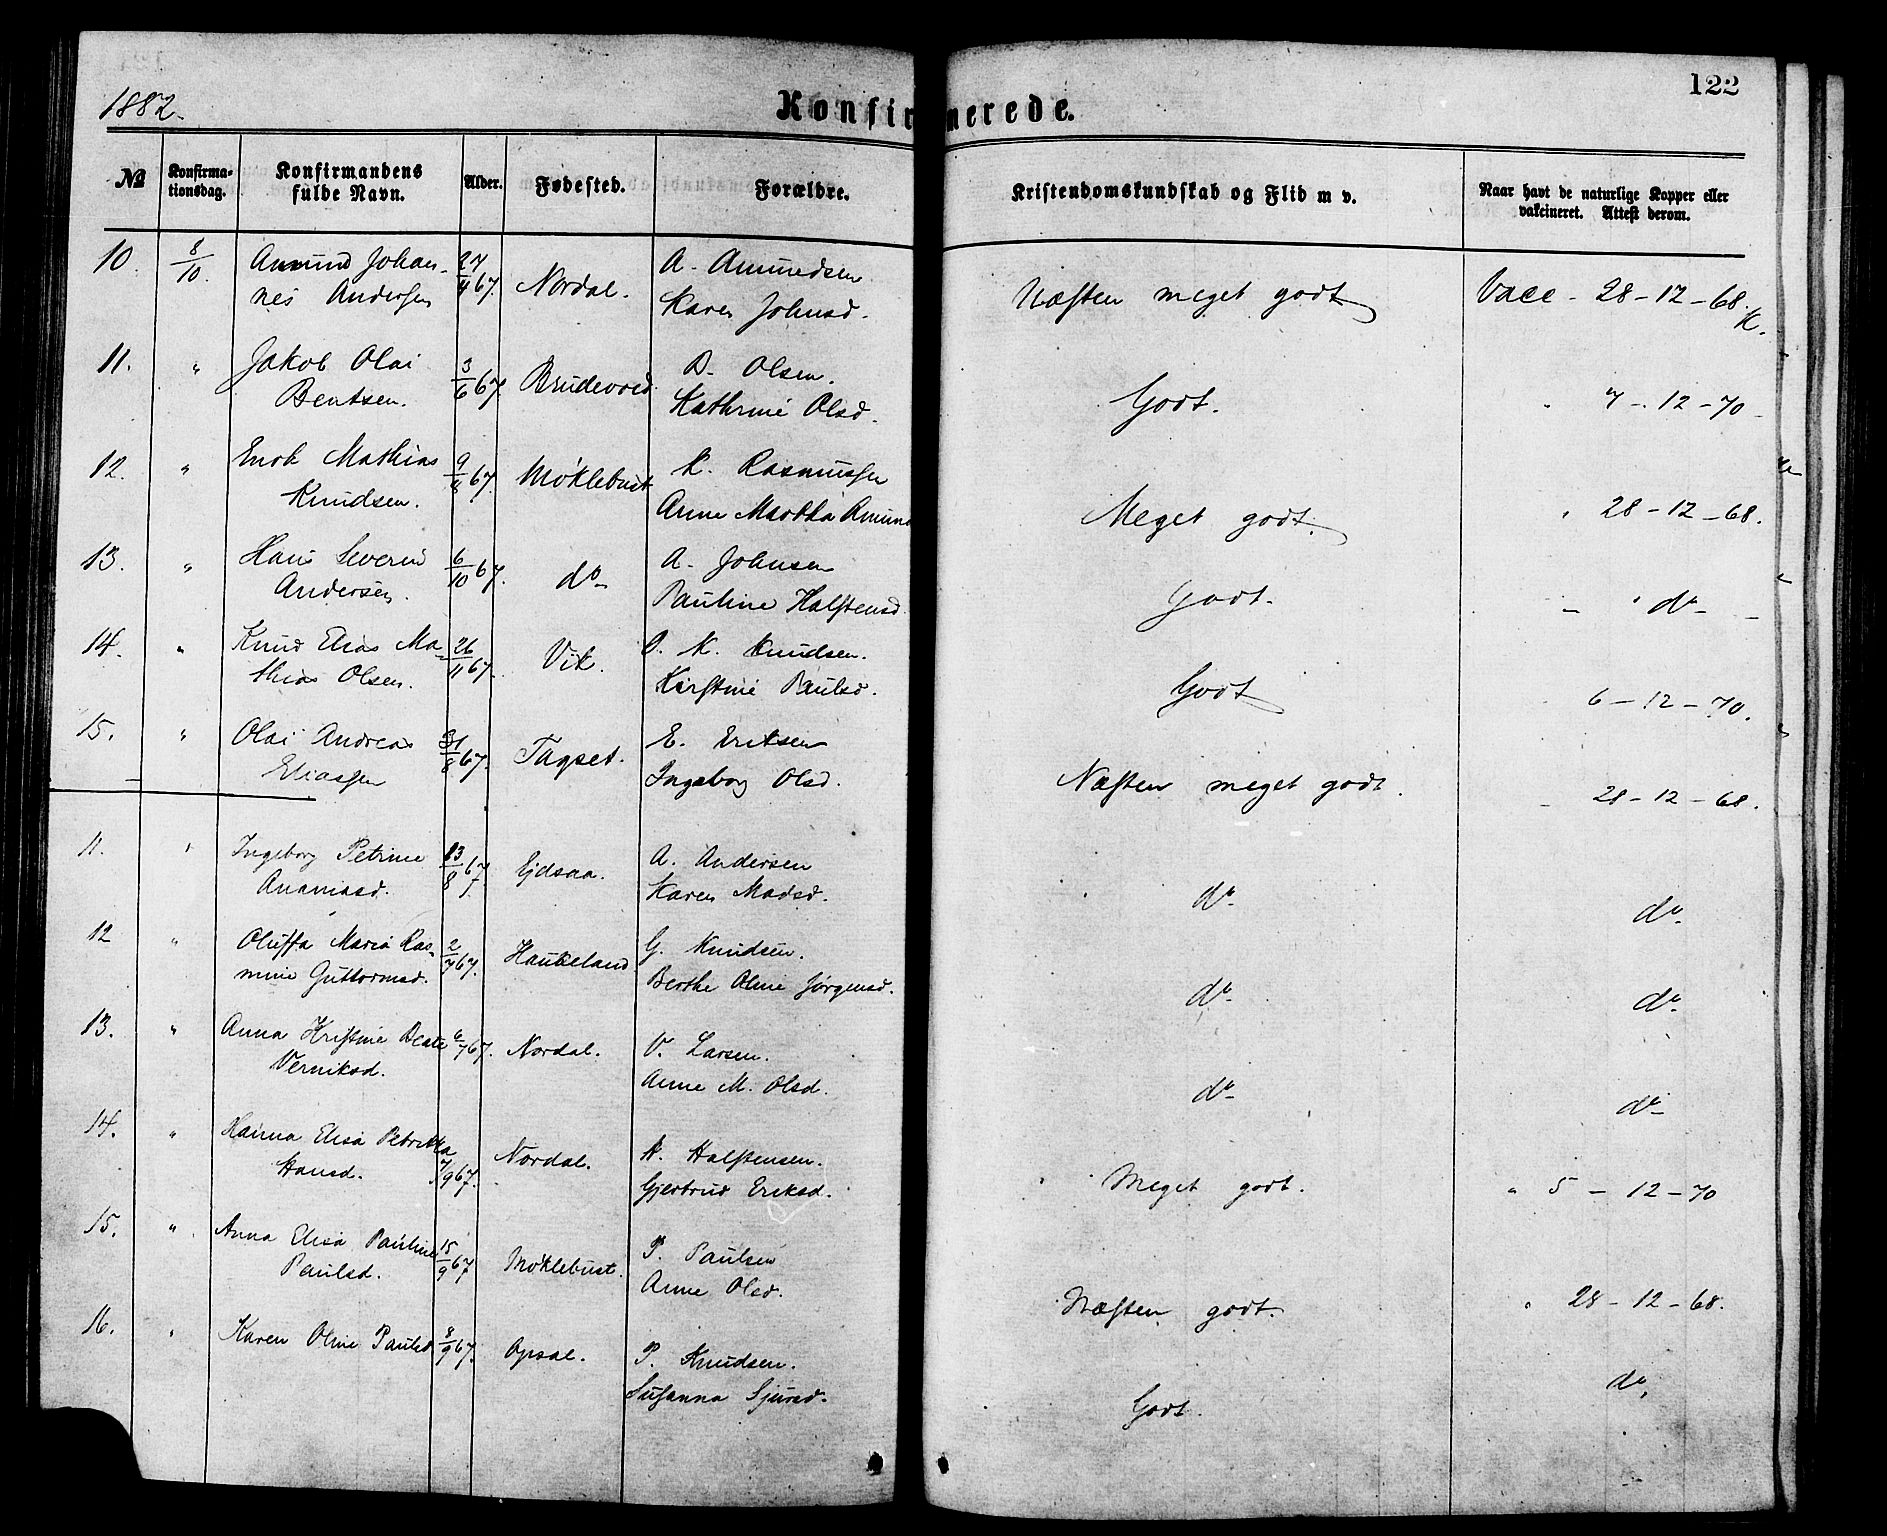 1882.
Konfirmerede.
122
№
Konfirma-
tionsdag.
Konfirmandens
fulde Navn.
Alder.
Fødested.
Forældre.
Kristendomskundskab og Flid m v.
Naar havt de naturlige Kopper eller
vakcineret. Attest derom.
10. 8/10. Amund Johan- 27/4 67. Nordal. A. Amundsen Næsten meget godt Vacc - 28-12-68. K.
nes Andersen Karen Johnsd.
11. " Jakob Olai 3/6 67. Brudevold B. Olsen. Godt. 7-12-70
Bentsen. Kathrine Olsd.
12. " Enok Mathias 9/8 67. Møklebust K. Rasmussen Meget godt. " 28-12-68.
Knudsen. Anne Martha Amund
13. " Hans Severin 6/10 67. do A. Johnsen Godt. - " do -
Andersen. Pauline Halstensd
14. " Knud Elias Ma- 26/11 67. Vik. O. K. Knudsen. Godt 6-12-70.
thias Olsen. Kirstine Paulsd.
15. " Olai Andreas 31/8 67. Tagset. E. Eriksen Næsten meget godt. 28-12-68.
Eliassen Ingeborg Olsd.
11. " Ingeborg Petrine 13/8 67. Ejdsaa. A. Andersen do do
Ananiasd. Karen Madsd.
12 " Oluffa Maria Ras- 2/7 67. Haukeland G. Knudsen. do do
mine Guttormsd. Berthe Oline Jørgensd.
13. " Anna Kristine Beate 6/7 67. Nordal. V. Larsen. do do
Verniksd. Anne M. Olsd.
14. " Hanna Elisa Petrikka 7/9 67. Nordal. H. Halstensen. Meget godt. " 5-12-70
Hansd. Gjertrud Eriksd.
15. " Anna Elisa Pauline 15/9 67 Møklebust. P. Paulsen Næsten godt. " 28-12-68.
Paulsd. Anne Olsd.
16. " Karen Oline Paulsd 8/9 67. Opsal. P. Knudsen. Godt. do
Susanna Sjursd.